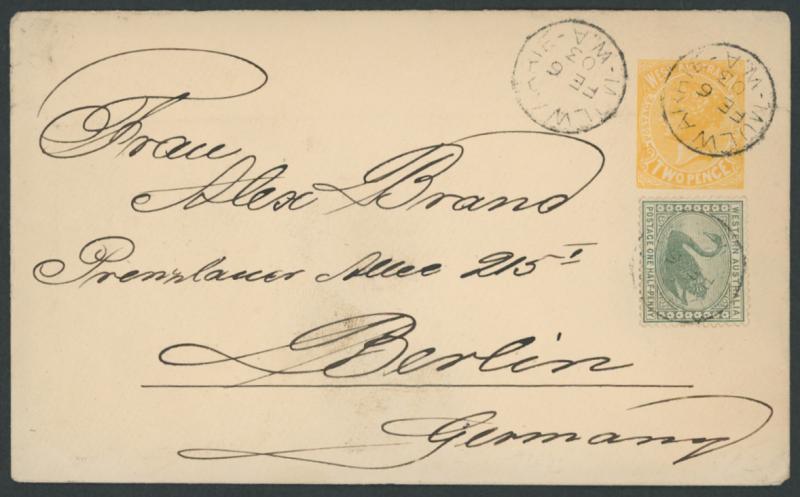 Frau
Alex Brand
Prenzlauer Allee 215 I
Berlin
Germany
MULWARRIE
FE 6
03
W.A
MULWARRIE
FE 6
03
W.A
POSTAGE
TWO PENCE
WESTERN AUSTRALIA
POSTAGE ONE HALF-PENNY